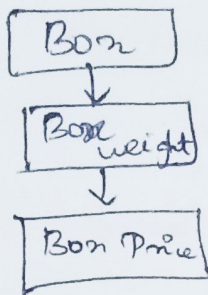 Box
Box
weight
Box Price